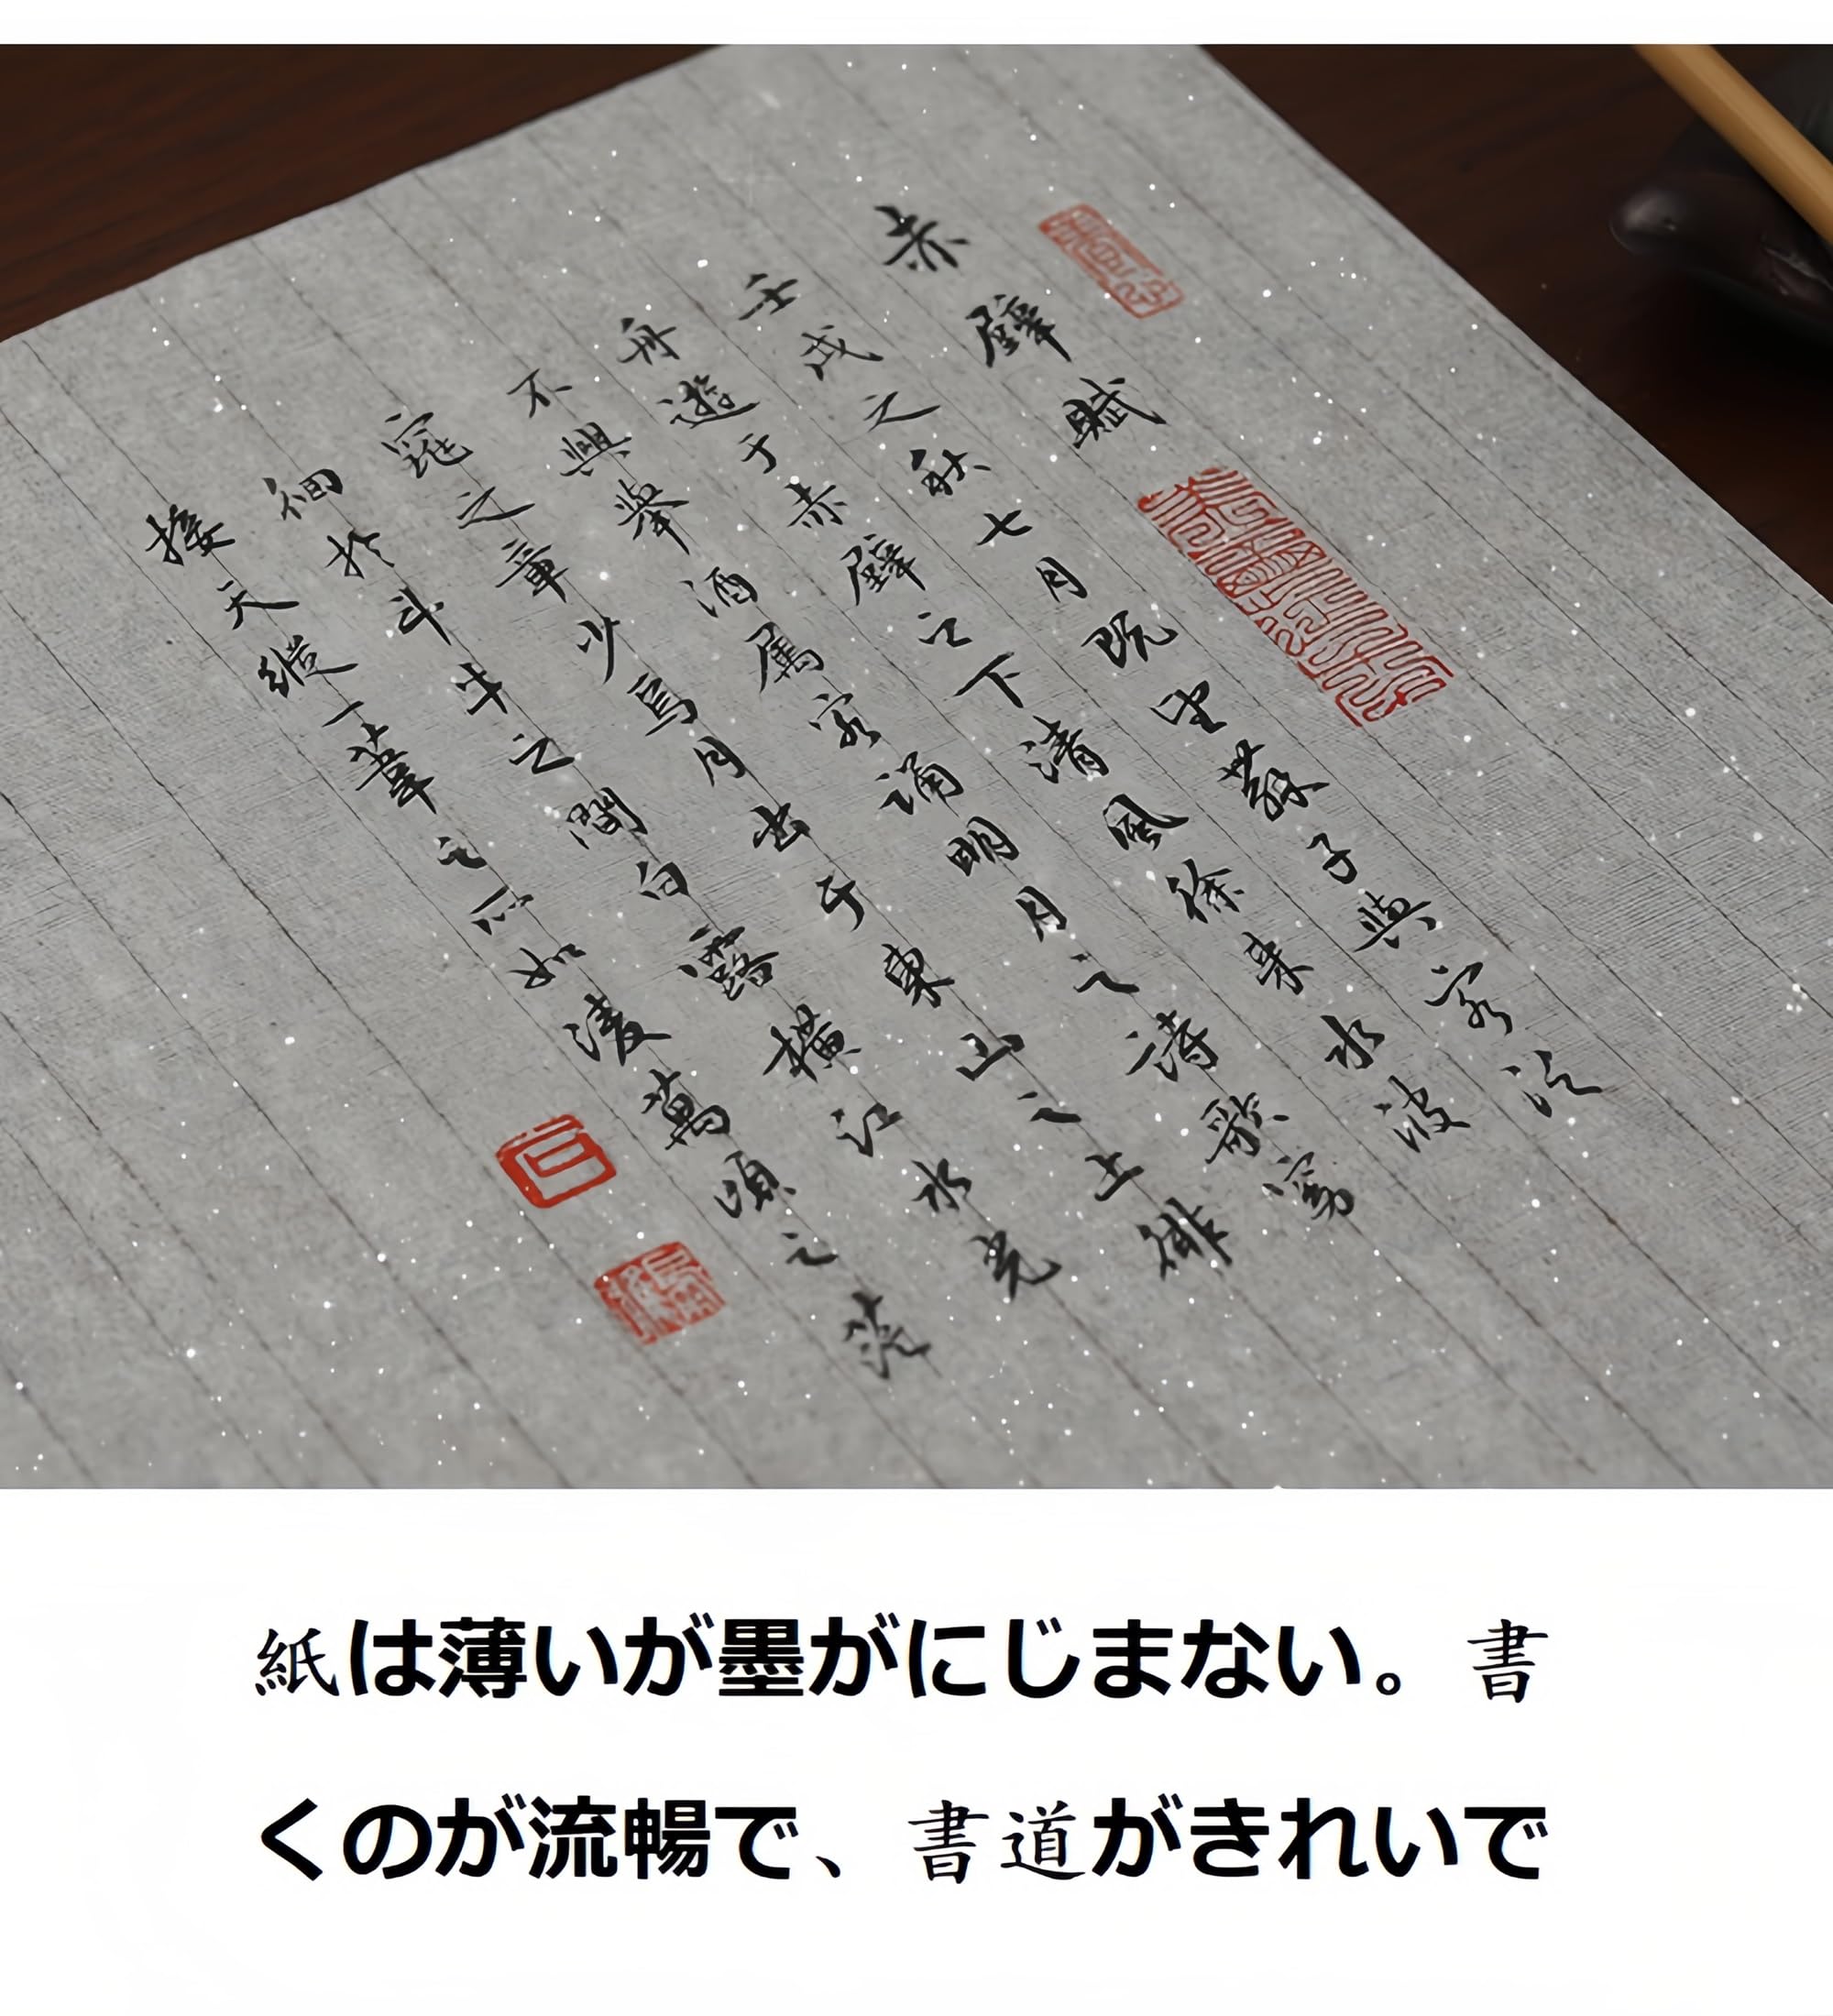 赤壁賦
壬戌之秋七月既望蘇子與客泛
舟遊于赤壁之下清風徐来水波
不興舉酒属客誦明月之詩歌窈
窕之章少焉月出于東山之上徘
徊於斗牛之間白露橫江水光
接天縱一葦之所如凌萬頃之茫
紙は薄いが墨がにじまない。書
くのが流暢で、書道がきれいで